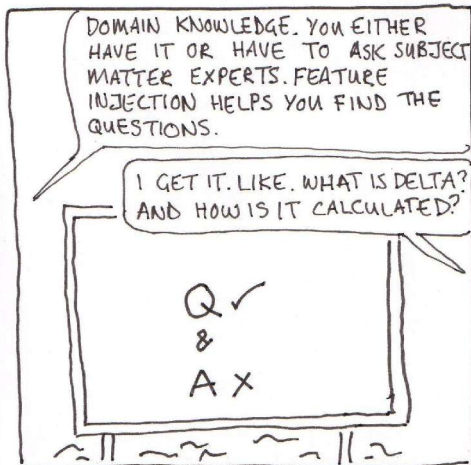 DOMAIN KNOWLEDGE. YOU EITHER
HAVE IT OR HAVE TO ASK SUBJECT
MATTER EXPERTS. FEATURE
INJECTION HELPS YOU FIND THE
QUESTIONS.
I GET IT. LIKE. WHAT IS DELTA?
AND HOW IS IT CALCULATED?
Q ✓
&
A X